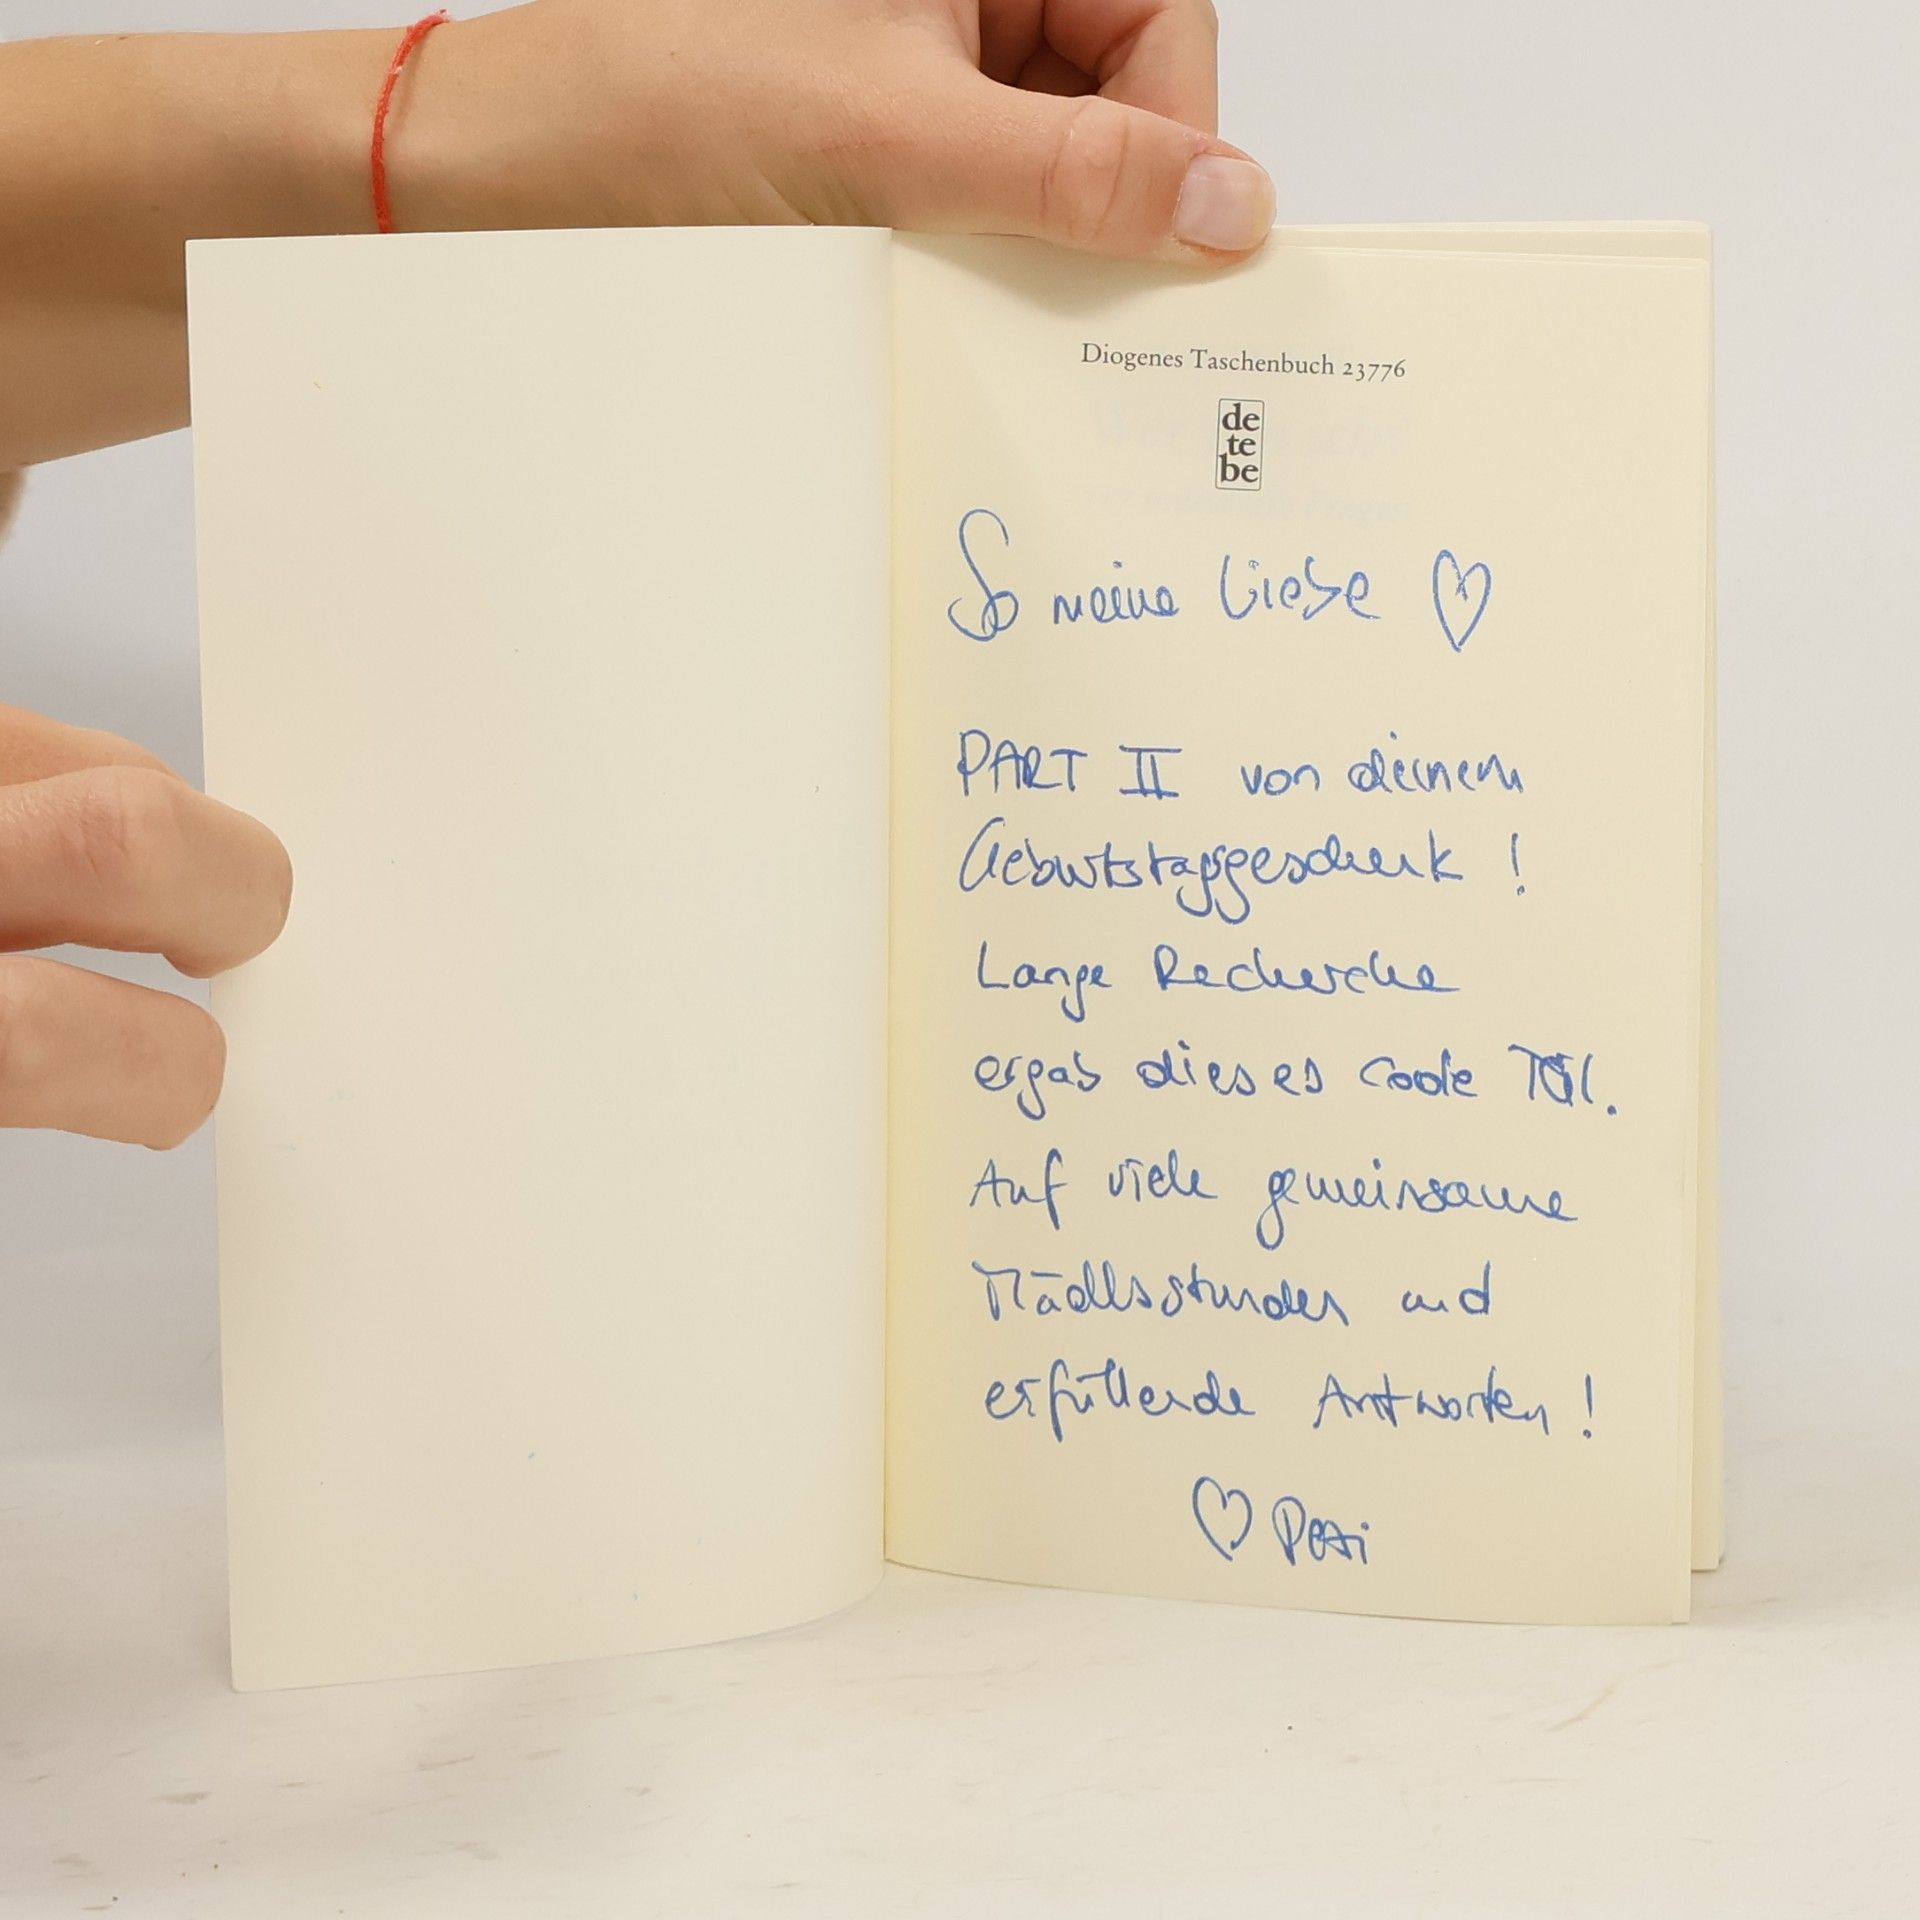 Diogenes Taschenbuch 23776
de
te
be
So meine Liebe
PART II von deinem
Geburtstagsgeschenk !
Lange Recherche
ergab dieses coole
Auf viele gemeinsame
Mädlsstunden und
erfüllende Antworten !